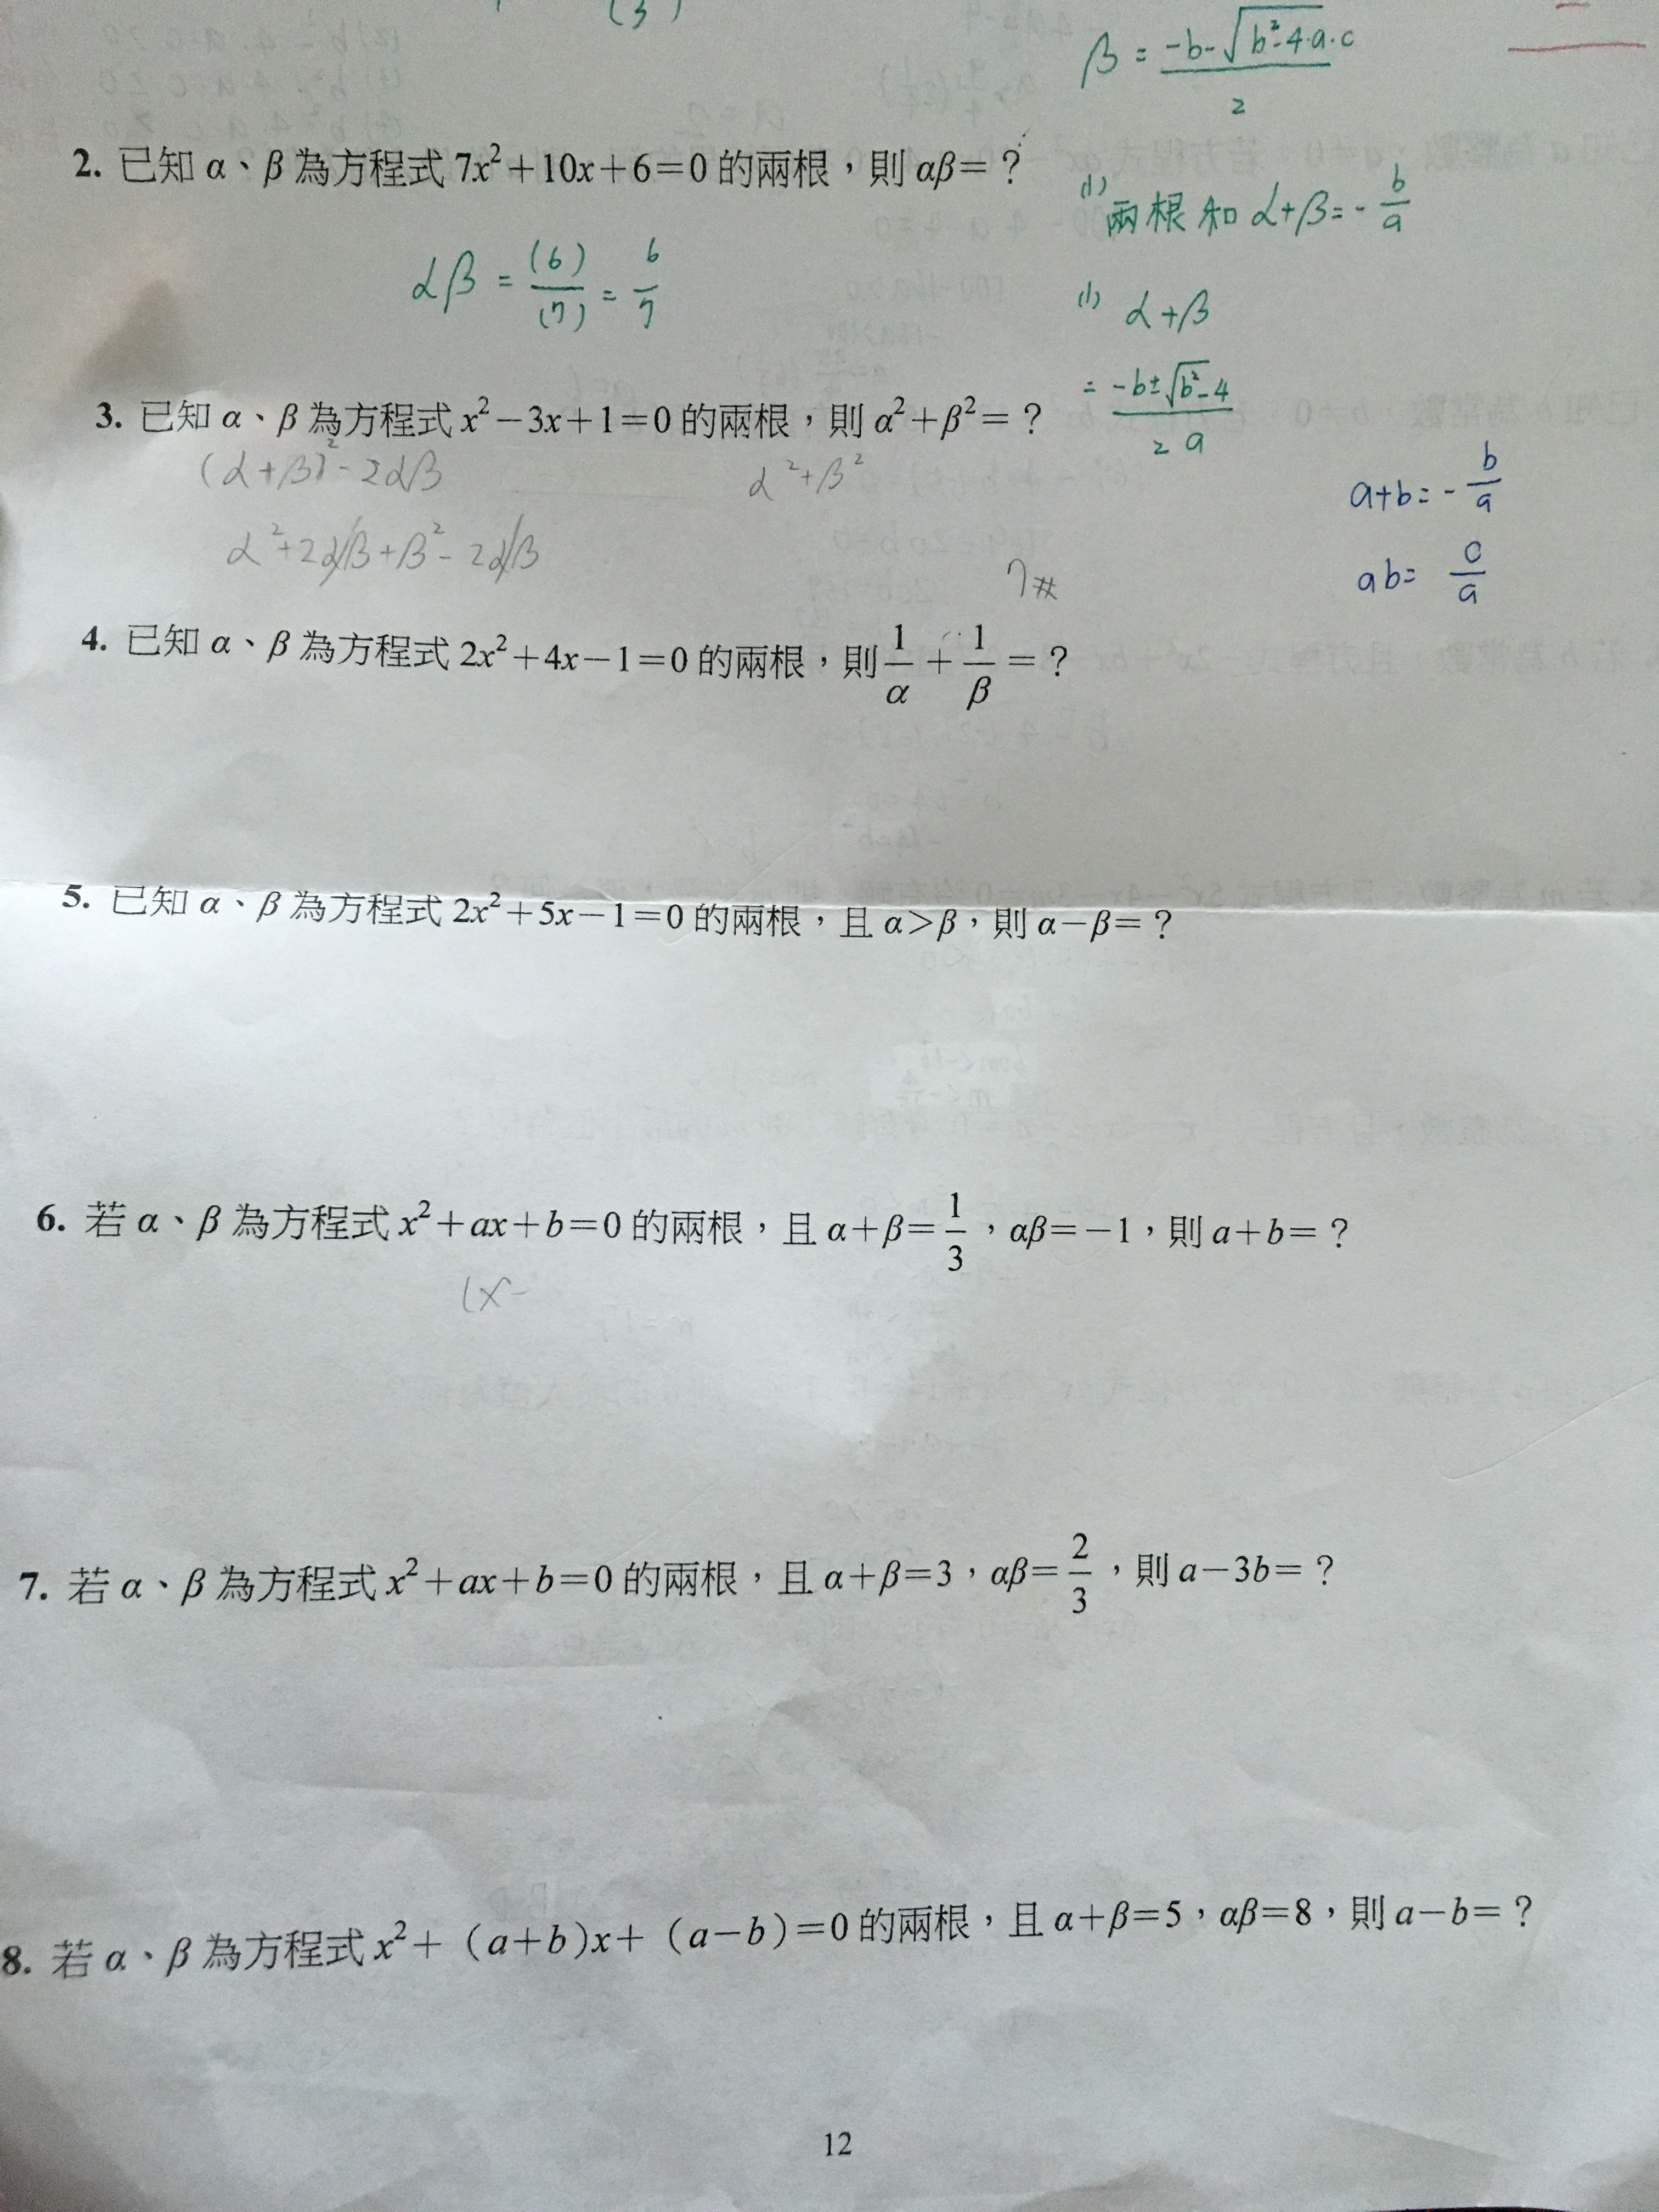 (3)
β = -b-√b²-4·a·c / 2
2. 已知 α、β 為方程式 7x²+10x+6=0 的兩根，則 αβ=？
(1) 兩根和 α+β=- b/a
αβ = (6)/(7) = 6/7
(1) α+β
= -b±√b²-4 / 2a
3. 已知 α、β 為方程式 x²-3x+1=0 的兩根，則 α²+β²=？
(α+β)²-2αβ
α²+β²
a+b=- b/a
α²+2αβ+β²-2αβ
7#
ab= c/a
4. 已知 α、β 為方程式 2x²+4x-1=0 的兩根，則 1/α + 1/β =？
5. 已知 α、β 為方程式 2x²+5x-1=0 的兩根，且 α>β，則 α-β=？
6. 若 α、β 為方程式 x²+ax+b=0 的兩根，且 α+β= 1/3，αβ=-1，則 a+b=？
(x-
7. 若 α、β 為方程式 x²+ax+b=0 的兩根，且 α+β=3，αβ= 2/3，則 a-3b=？
8. 若 α、β 為方程式 x²+（a+b)x+（a-b)=0 的兩根，且 α+β=5，αβ=8，則 a-b=？
12